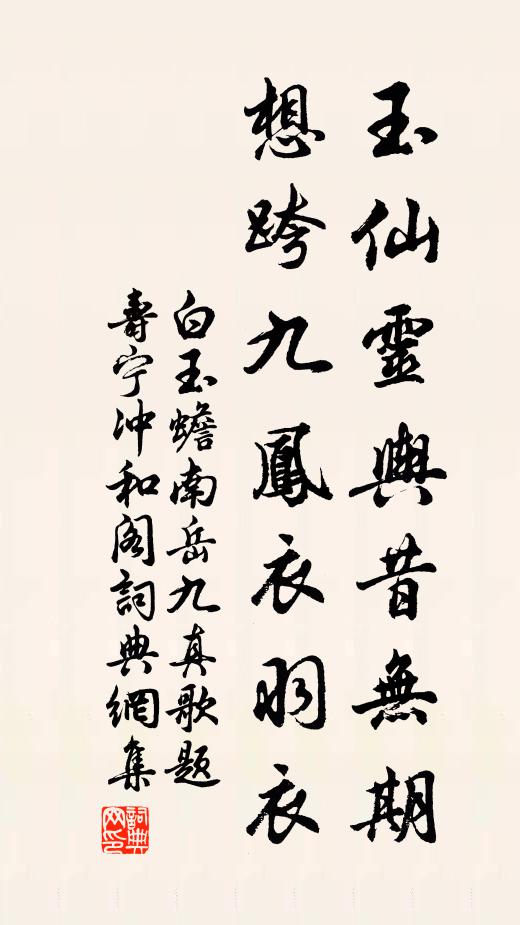 玉仙靈輿昔無期
想跨九鳳衣羽衣
白玉蟾南岳九真歌题
壽宁冲和阁詞典網集
詞典网印